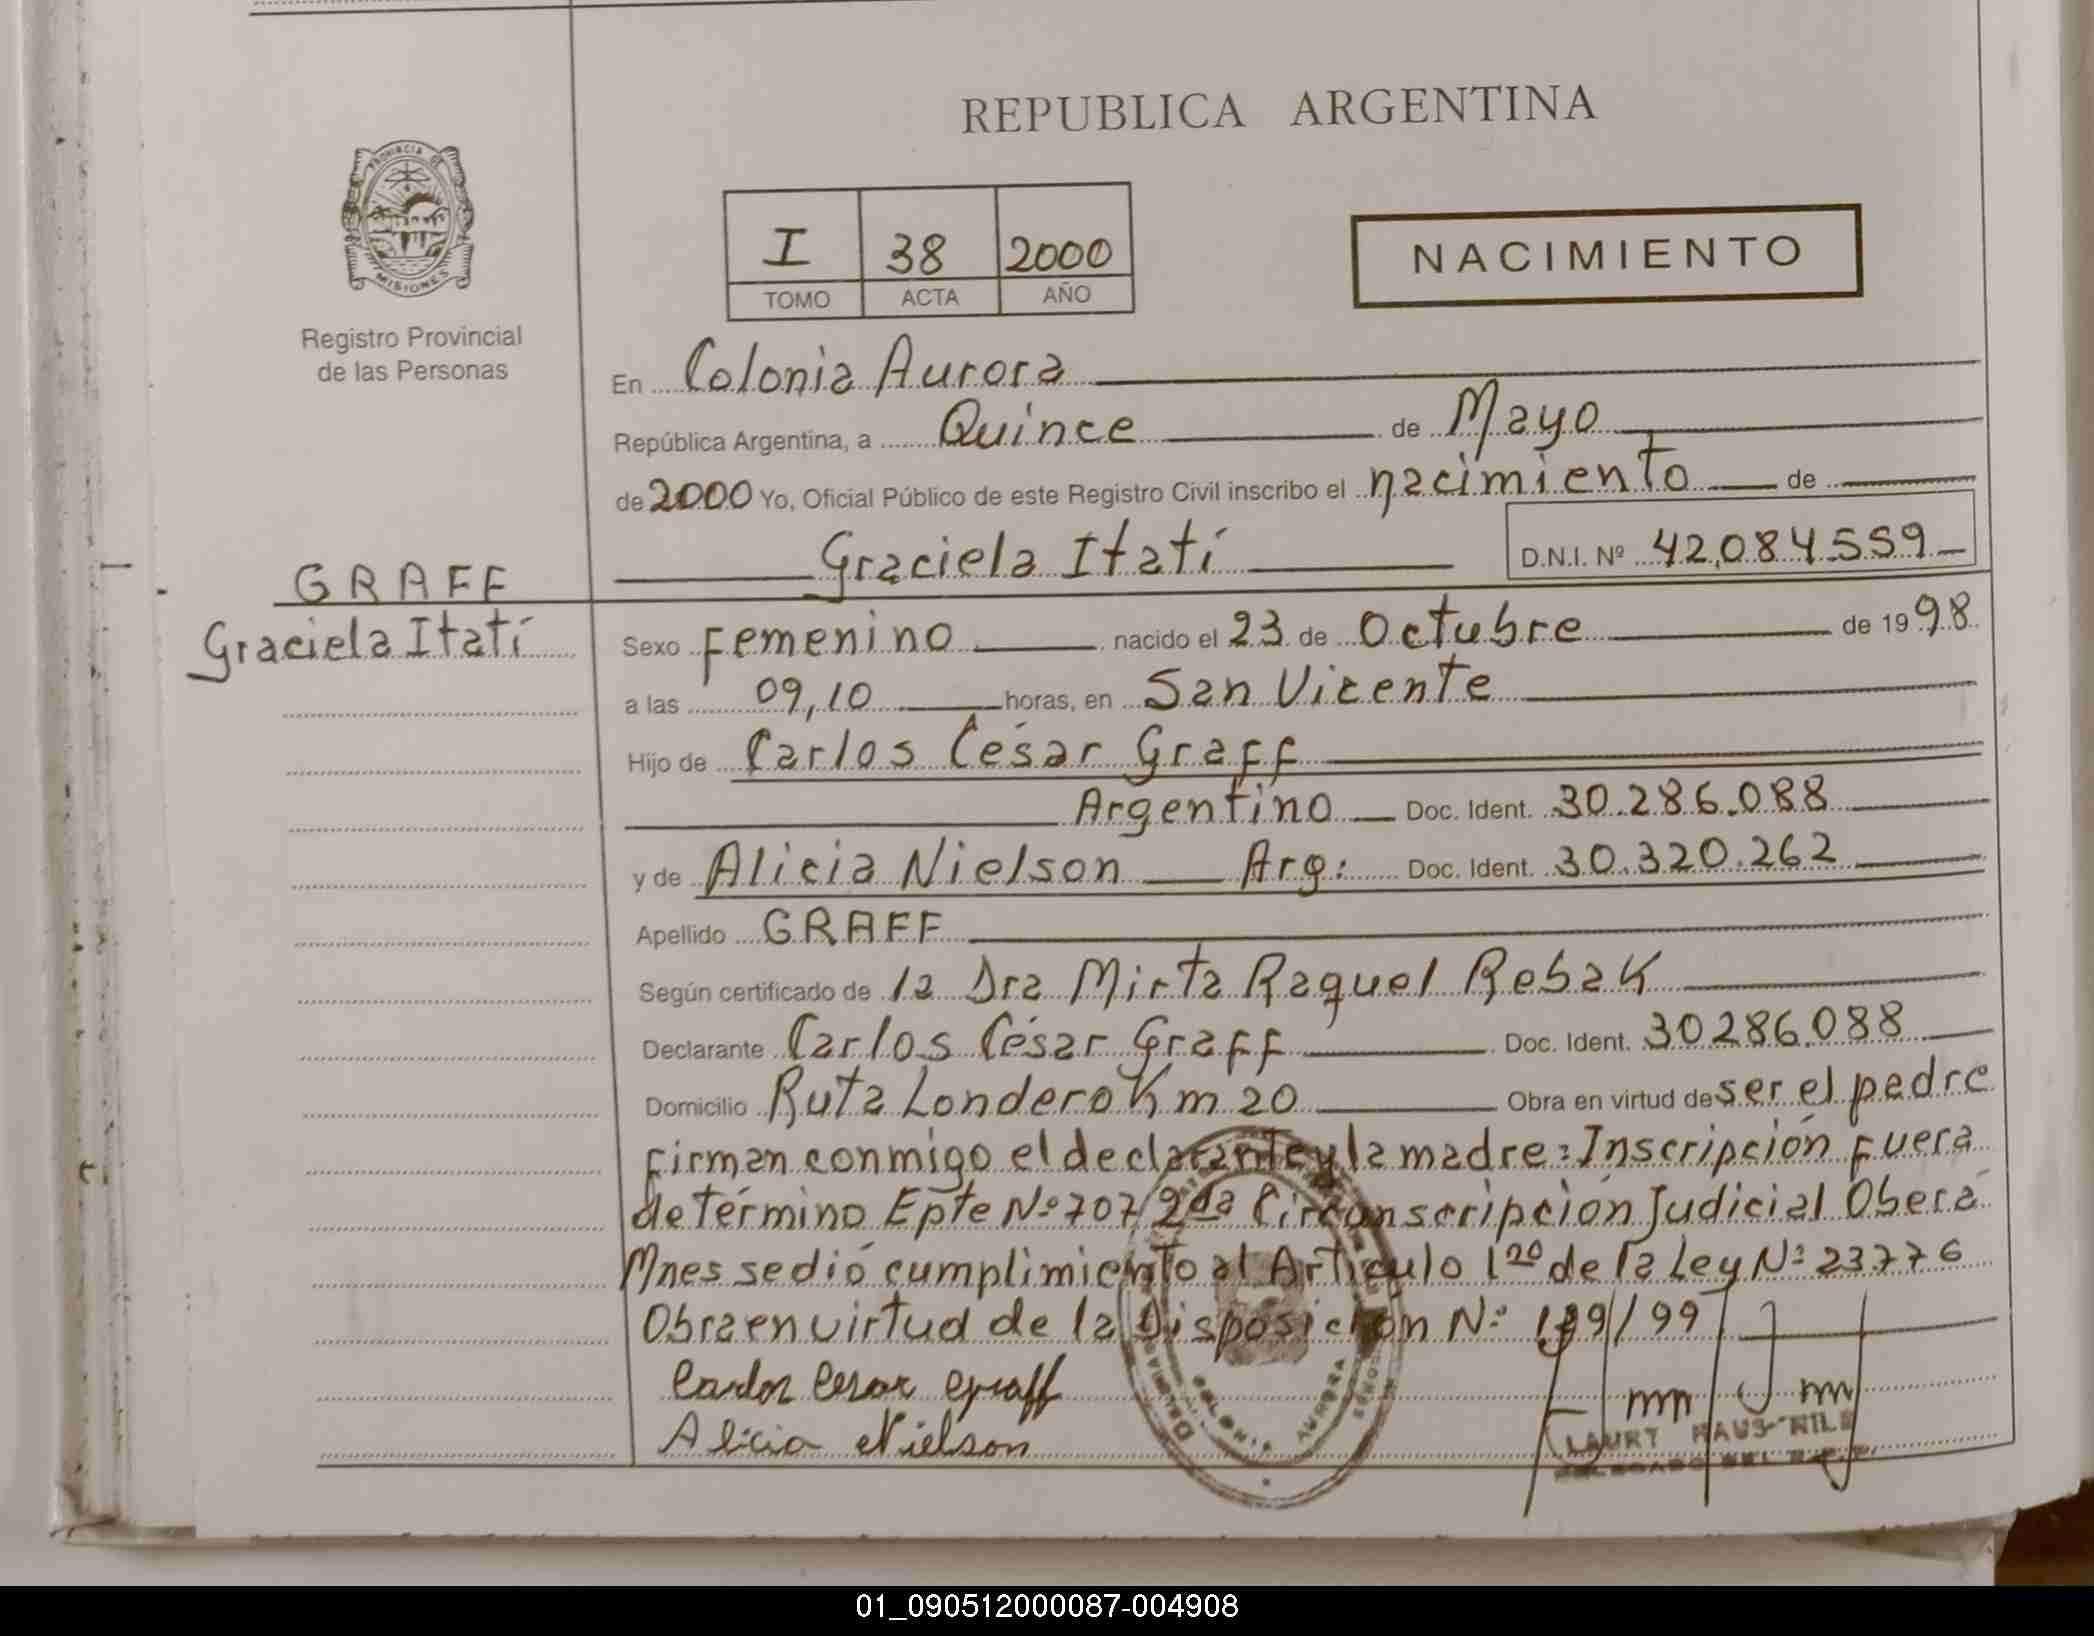 REPUBLICA ARGENTINA
PROVINCIA DE
MISIONES
Registro Provincial
de las Personas
I 38 2000
TOMO ACTA AÑO
NACIMIENTO
En Colonia Aurora
República Argentina, a Quince de Mayo
de 2000 Yo, Oficial Público de este Registro Civil inscribo el nacimiento de
Graciela Itatí D.N.I. Nº 42,084.559
GRAFF
Graciela Itatí
Sexo Femenino nacido el 23 de Octubre de 1998
a las 09,10 horas, en San Vicente
Hijo de Carlos César Graff
Argentino Doc. Ident. 30.286.088
y de Alicia Nielson Arg: Doc. Ident. 30.320.262
Apellido GRAFF
Según certificado de la Dra Mirta Raquel Rebak
Declarante Carlos César Graff Doc. Ident. 30286.088
Domicilio Ruta Londero Km 20 Obra en virtud de ser el padre
Firman conmigo el declarante y la madre: Inscripción Fuera
de término Epte Nº 707/2da Circunscripción Judicial Oberá
Mnes se dió cumplimiento al Artículo 1º de la Ley Nº 23776
Obra en virtud de la Disposición Nº /99
Carlos Cesar Graff
Alicia Nielson
COLONIA AURORA
01_090512000087-004908